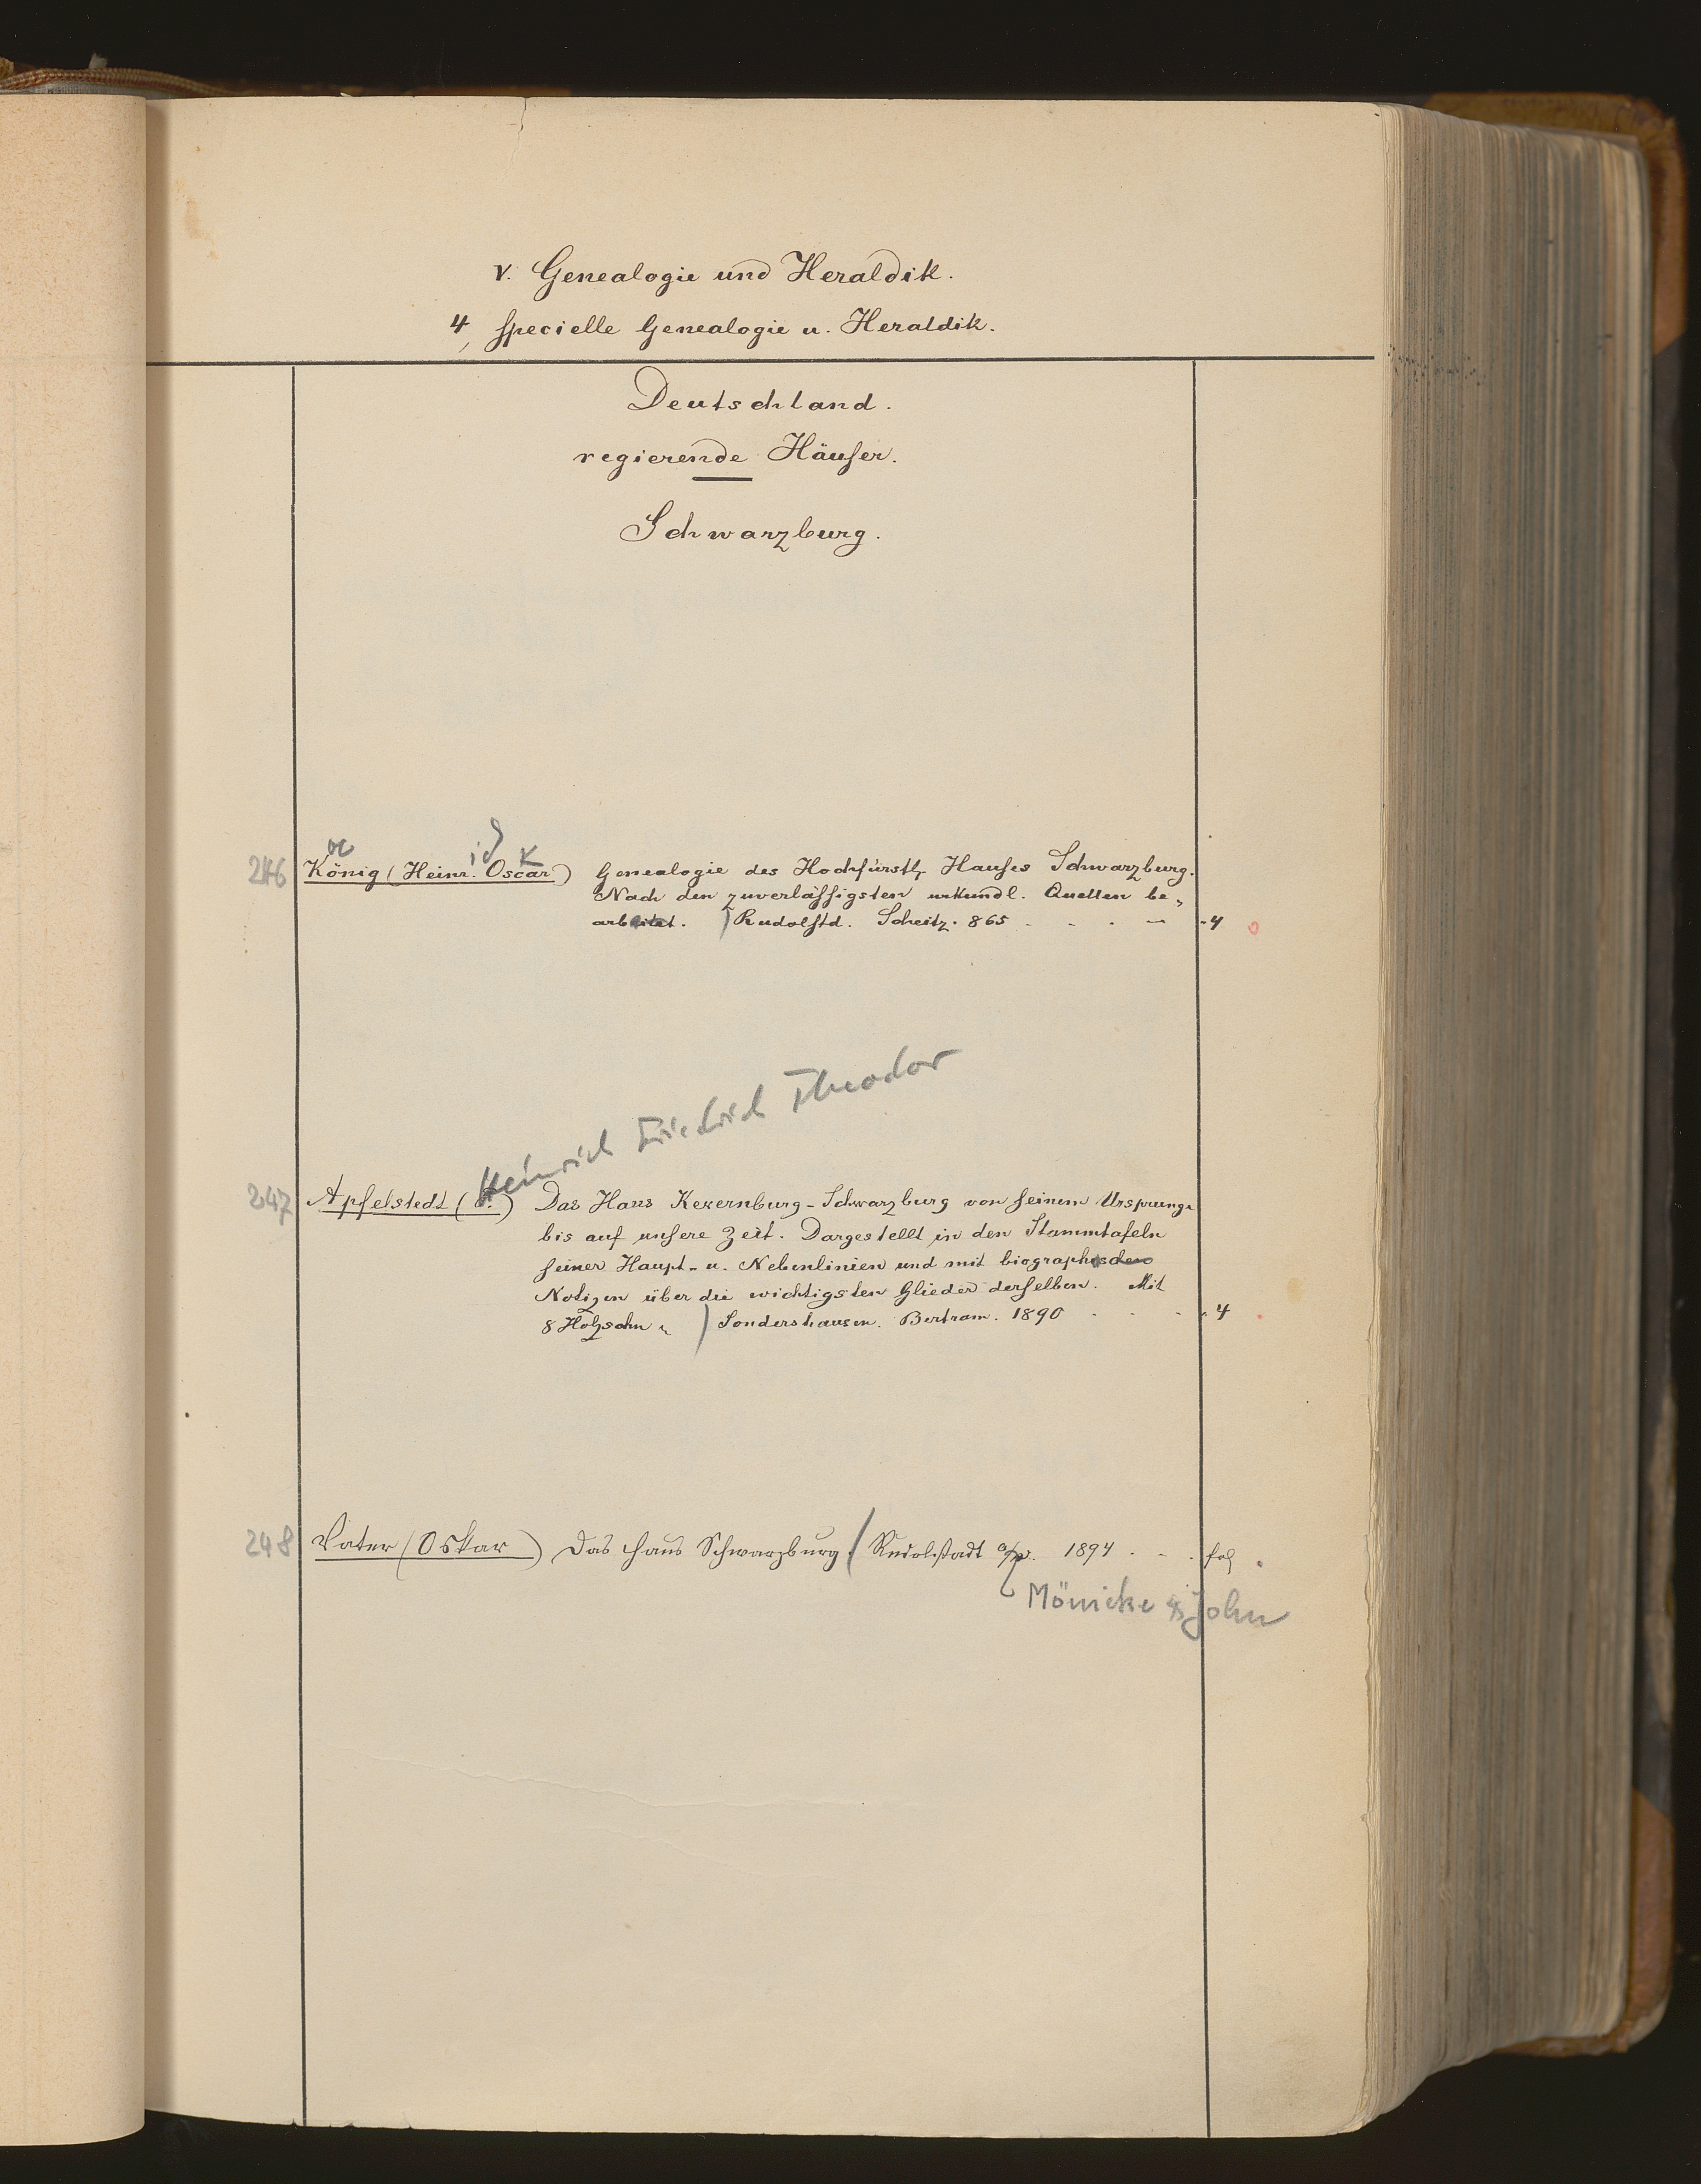 V. Genealogie und Heraldik.
4, specielle Genealogie u. Heraldik.
Deutschland.
regierende Häuser.
Schwarzburg.
oe ich k
246 König (Heinr. Oscar) Genealogie des Hochfürstl. Hauses Schwarzburg.
Nach den zuverlässigsten urkundl. Quellen be-
arbeitet. Rudolstd. Scheitz. 865 . . . - 4
Heinrich Friedrich Theodor
247 Apfelstedt ( ) Das Haus Kevernburg-Schwarzburg von seinem Ursprunge
bis auf unsere Zeit. Dargestellt in den Stammtafeln
seiner Haupt- u. Nebenlinien und mit biographischen
Notizen über die wichtigsten Glieder derselben. Mit
8 Holzschn. Sondershausen. Bertram. 1890 . . . 4
248 Vater (Oskar) Das Haus Schwarzburg. Rudolstadt 1894 . . . fol
Mönicke & John